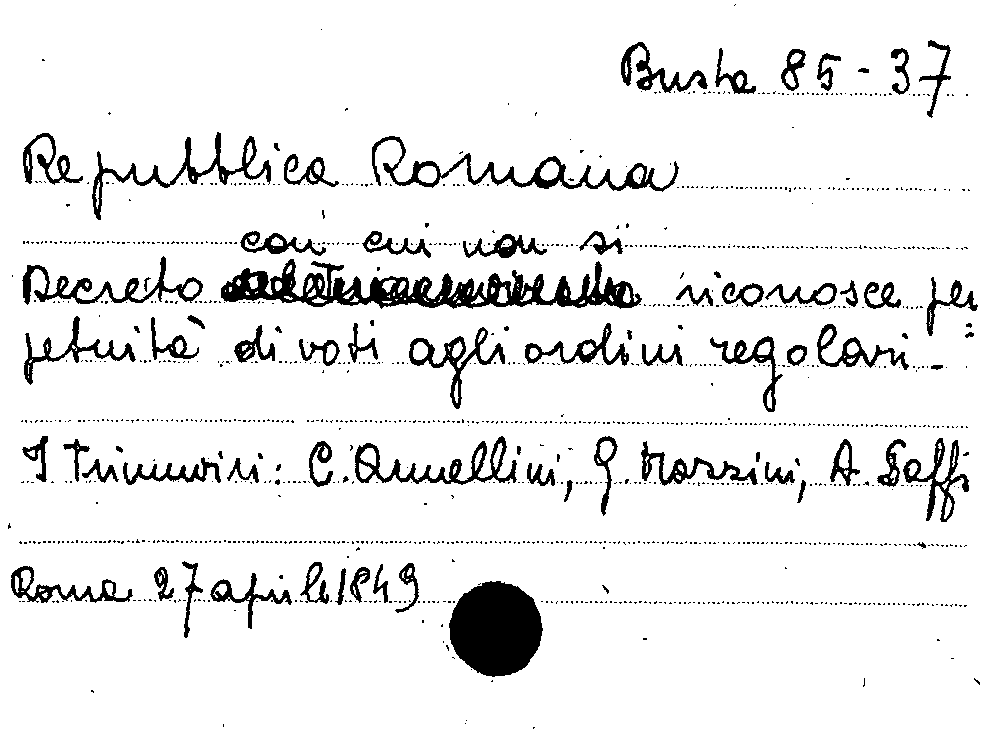 Busta 85-37
Repubblica Romana
con cui non si
Decreto riconosce per=
petuità di voti agli ordini regolari -
I Triumviri: C. Armellini, G. Mazzini, A. Saffi
Roma 27 aprile 1849